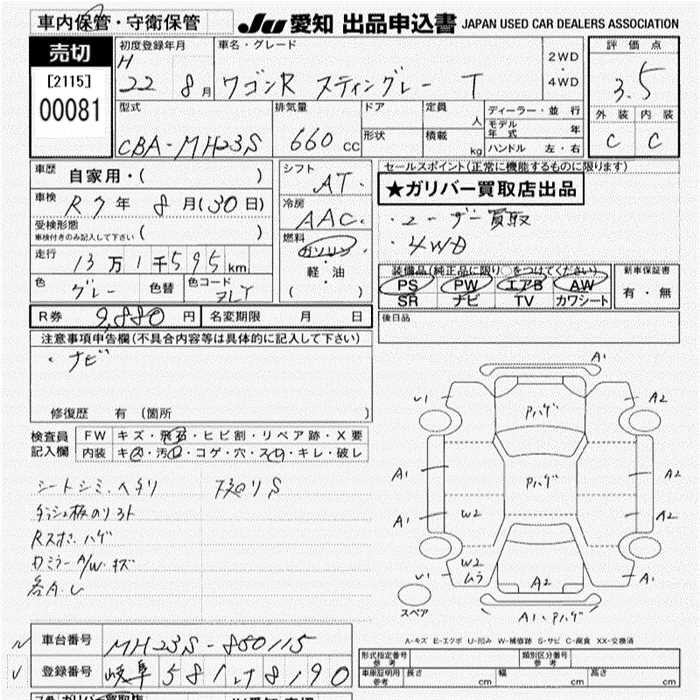 車内保管・守衛保管
JU 愛知 出品申込書 JAPAN USED CAR DEALERS ASSOCIATION
売切
[2115]
00081
初度登録年月
H
22 8月
車名・グレード
ワゴンR スティングレー T
2WD
・
4WD
評価点
3.5
外装 内装
C C
型式
CBA-MH23S
排気量
660 cc
ドア
形状
定員
人
積載
kg
ディーラー・並行
モデル年式 年
ハンドル 左・右
車歴
自家用・( )
車検
R7年 8月(30日)
受検形態
車検付きのみ記入して下さい
( )
走行
13万1千595km
色
グレー
色替
色コード
ZLY
シフト
AT
冷房
AAC
燃料
ガソリン
軽・油
( )
セールスポイント(正常に機能するものに限ります)
★ガリバー買取店出品
・ユーザー買取
・4WD
装備品(純正品に限り○をつけてください)
PS PW エアB AW
SR ナビ TV カワシート
新車保証書
有・無
R券 9,880円
名変期限 月 日
後日品
注意事項申告欄(不具合内容等は具体的に記入して下さい)
・ナビ
修復歴 有 (箇所 )
検査員
記入欄
FW キズ・飛石・ヒビ割・リペア跡・X要
内装 キズ・汚れ・コゲ・穴・スレ・キレ・破レ
シートシミ、ヘタリ
Rスポ、ハゲ
ドミラーA/W、キズ
各A.U
A1
U1
A2
Pハゲ
A1
A2
Pハゲ
A1
W2
A1
U1
W2
ムラ
A2
A1
スペア
A1、Pハゲ
A-キズ E-エクボ U-凹み W-補修跡 S-サビ C-腐食 XX-交換済
車台番号
MH23S-860115
登録番号
岐阜 581 け 8190
形式指定番号
参考
類別区分番号
参考
車庫証明用
参考
長さ cm
幅 cm
高さ cm
ガリバー買取店